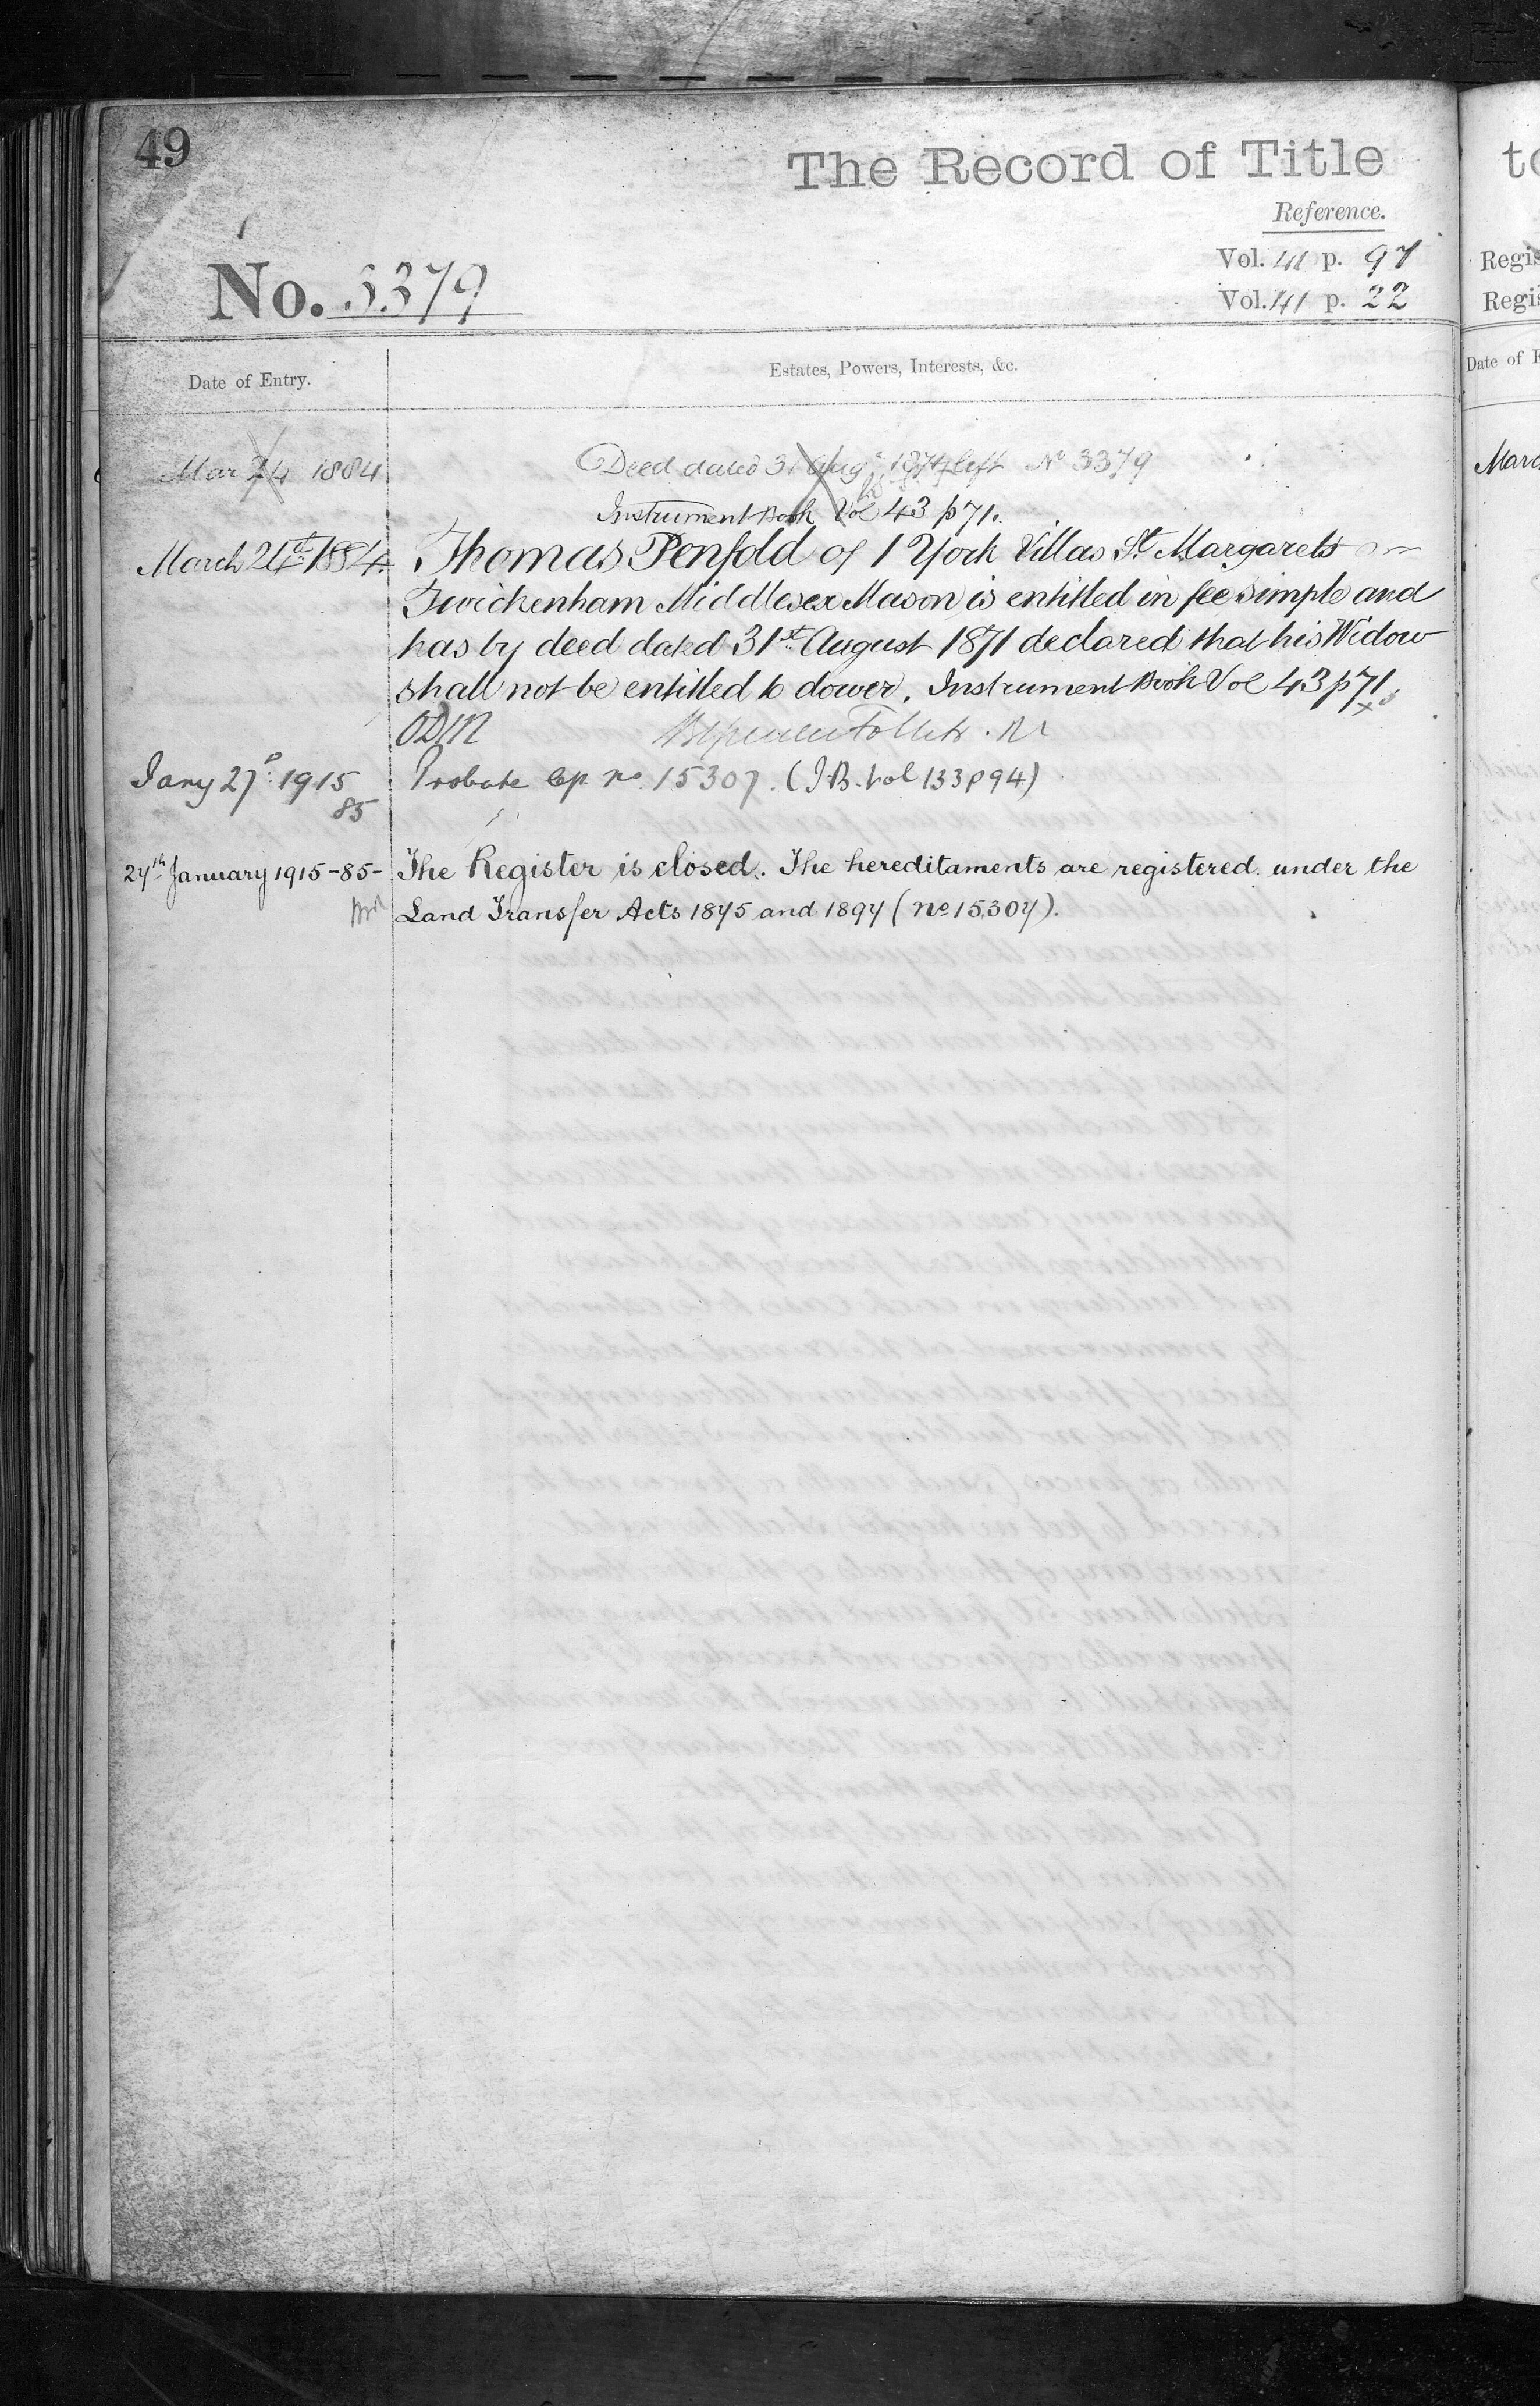 49
The Record of Title
Reference.
Vol. 41 p. 97
No. 3379
Vol. 41 p. 22
Date of Entry.
Estates, Powers, Interests, &c.
Mar 24 1884 Deed dated 31 Augt 1871 left No 3379
Instrument Book Vol 43 p 71.
March 24th 1884. Thomas Penfold of 1 York Villas St. Margarets
Twickenham Middlesex Mason is entitled in fee simple and
has by deed dated 31st August 1871 declared that his Widow
shall not be entitled to dower. Instrument Book Vol 43 p 71.
ODM
Jany 27 1915 Probate no. 15307. (I.B. Vol 133 p 94)
85
27th January 1915-85- The Register is closed. The hereditaments are registered under the
Land Transfer Acts 1875 and 1897 (No 15,307).
to
Regis
Regis
Date of E
Marc